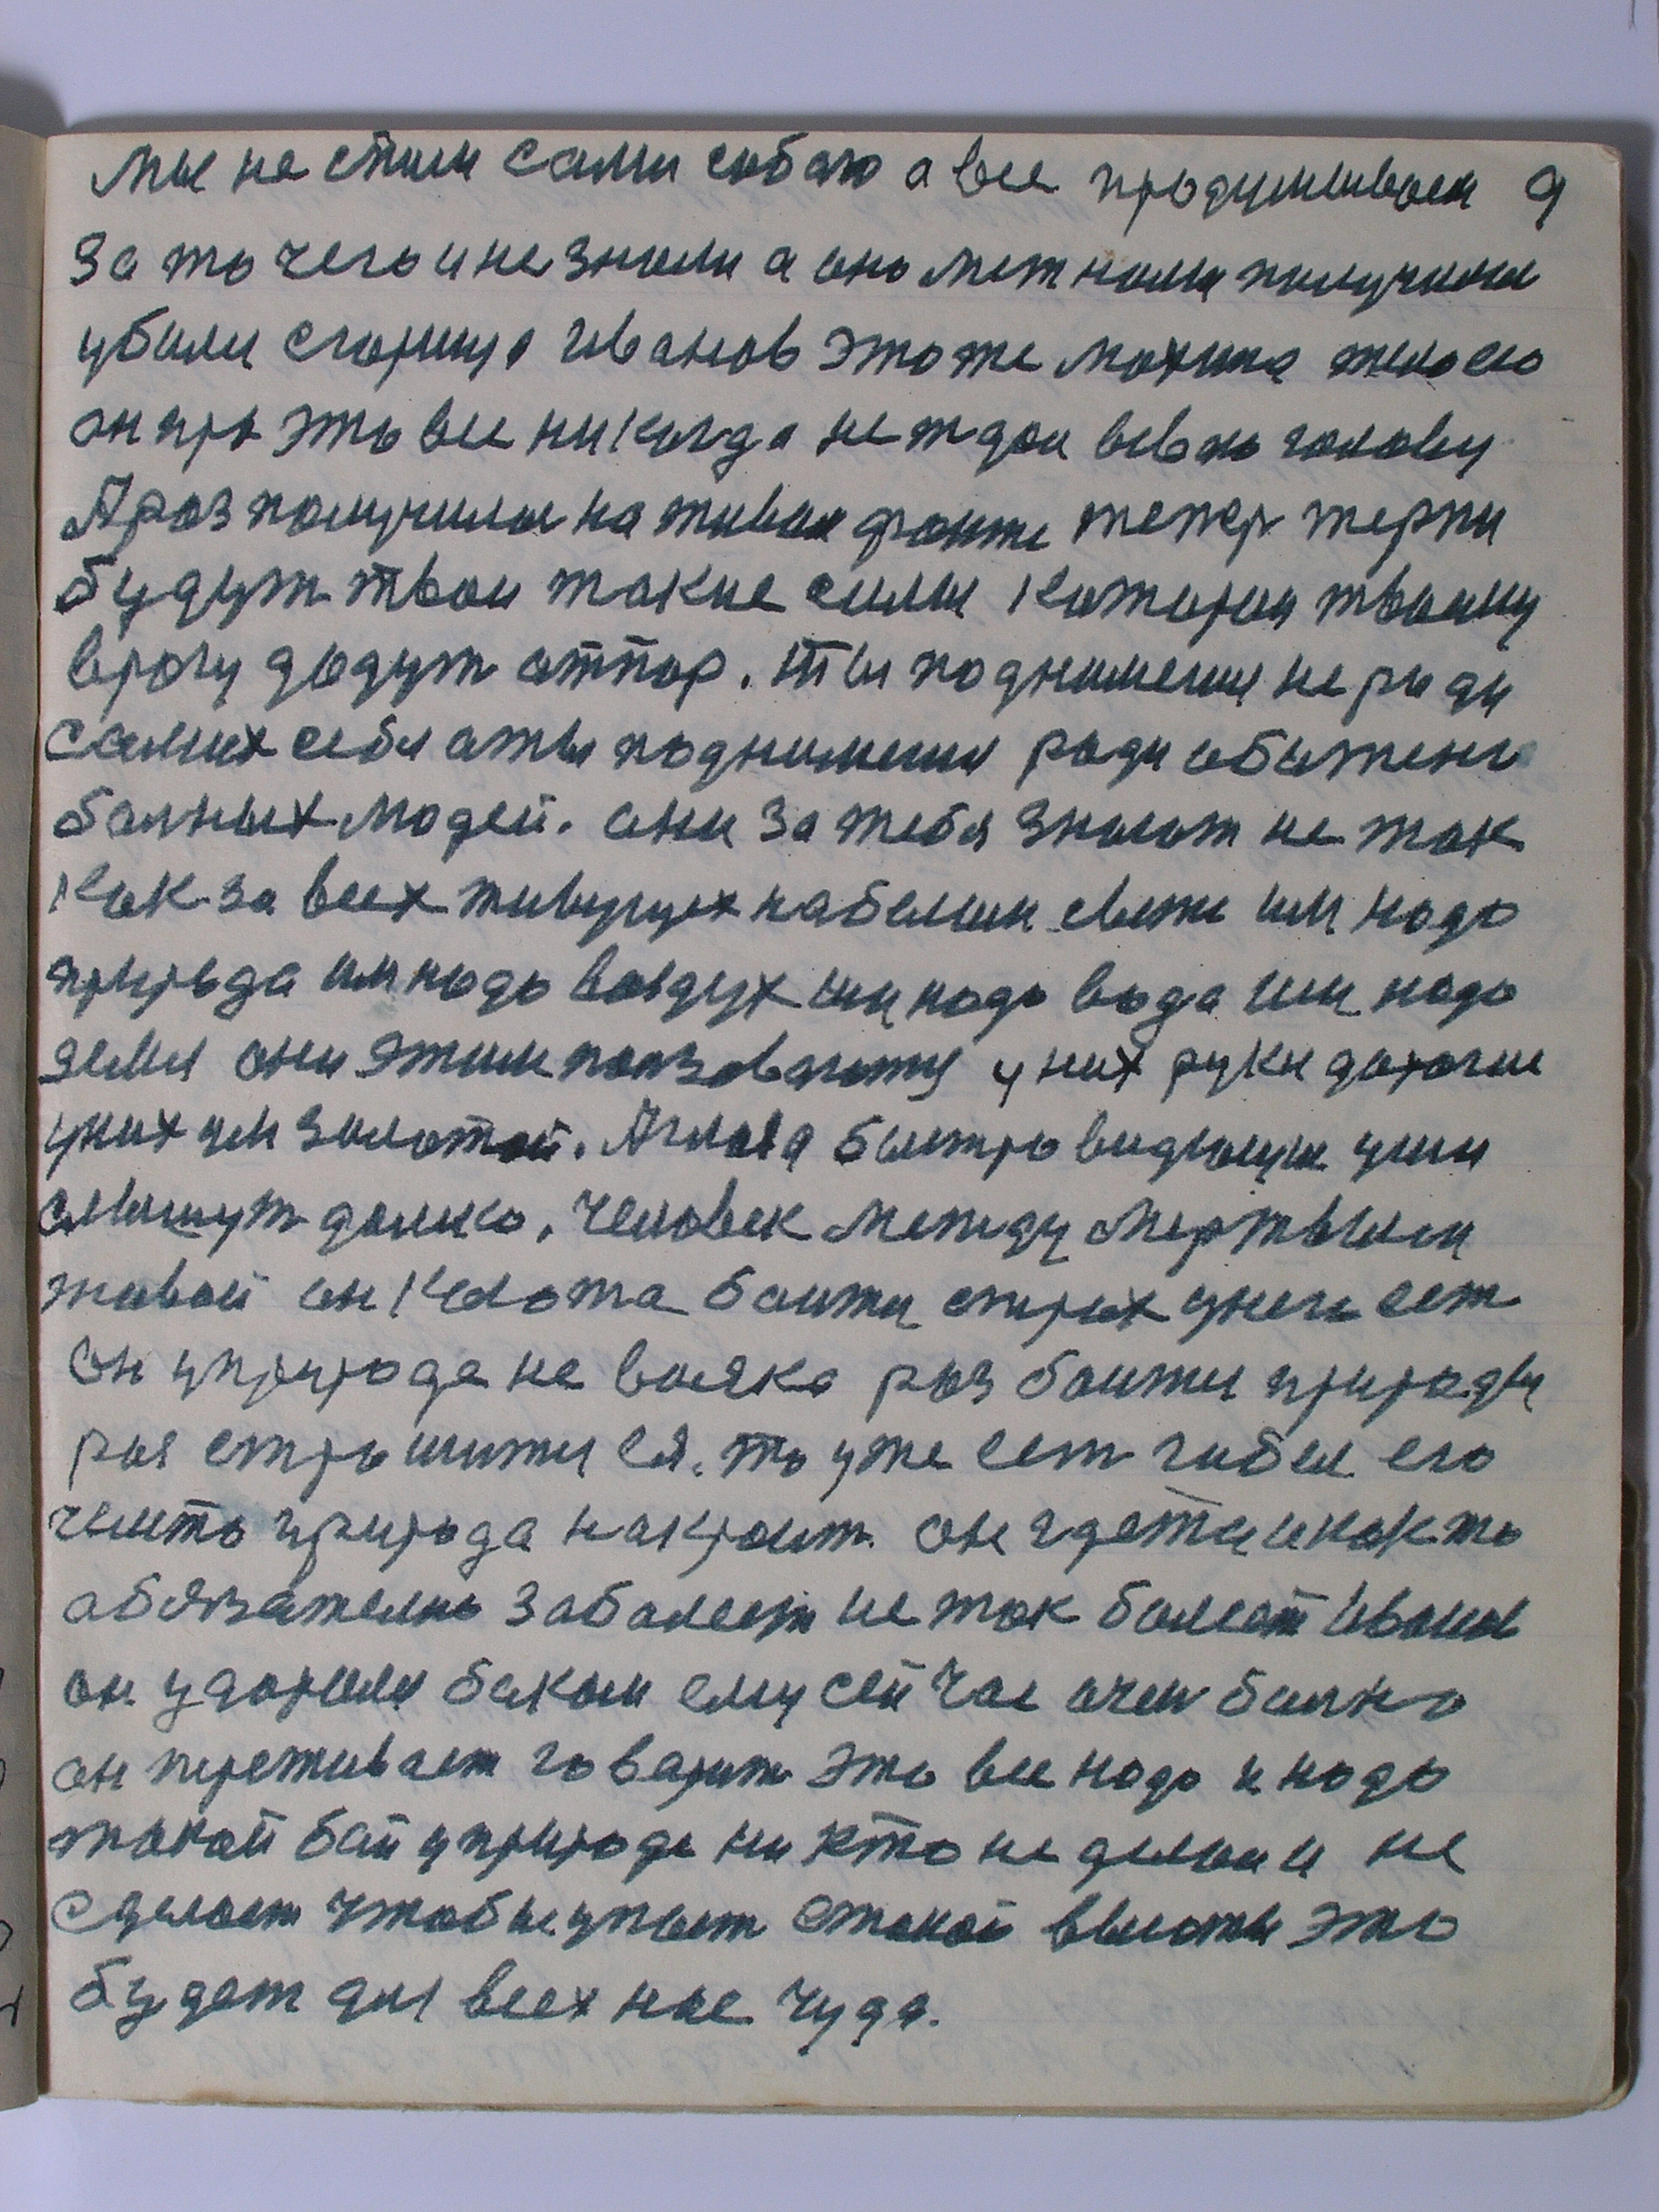 мы не спим сами собою а все продумываем 9
За то чего и не знали а оно мет нами получили
убили старицу Иванов это же махина тело его
он про это все никогда не ждал в его голову
А раз получилос на живом фронте тепер терпи
будут твои такие силы каторои твоему
врагу дадут атпор. ты поднимешся не ради
самих себя а ты поднимешся ради абижено
болных людей. они за тебя знают не так
как за всех живущих на белом свете им надо
природа им надо воздух им надо вода им надо
земля они этим ползоваются у них руки дорогие
у них ум золотой. А глаза быстро видющие уши
слышут далико. Человек между мертвыми
живой он кагота баится страх у него ест
Он у природе не вояка раз баится природы
раз страшится ея. то уже ест гибел его
чемто природа накроит. он гдета и как то
абязателно заболеет не так болеет Иванов
он ударился баком ему сейчас очен болно
он переживает говарит это все надо и надо
такой бай у природе никто не делал и не
сделает чтобы упаст стакой высоты это
будет для всех нас чуда.